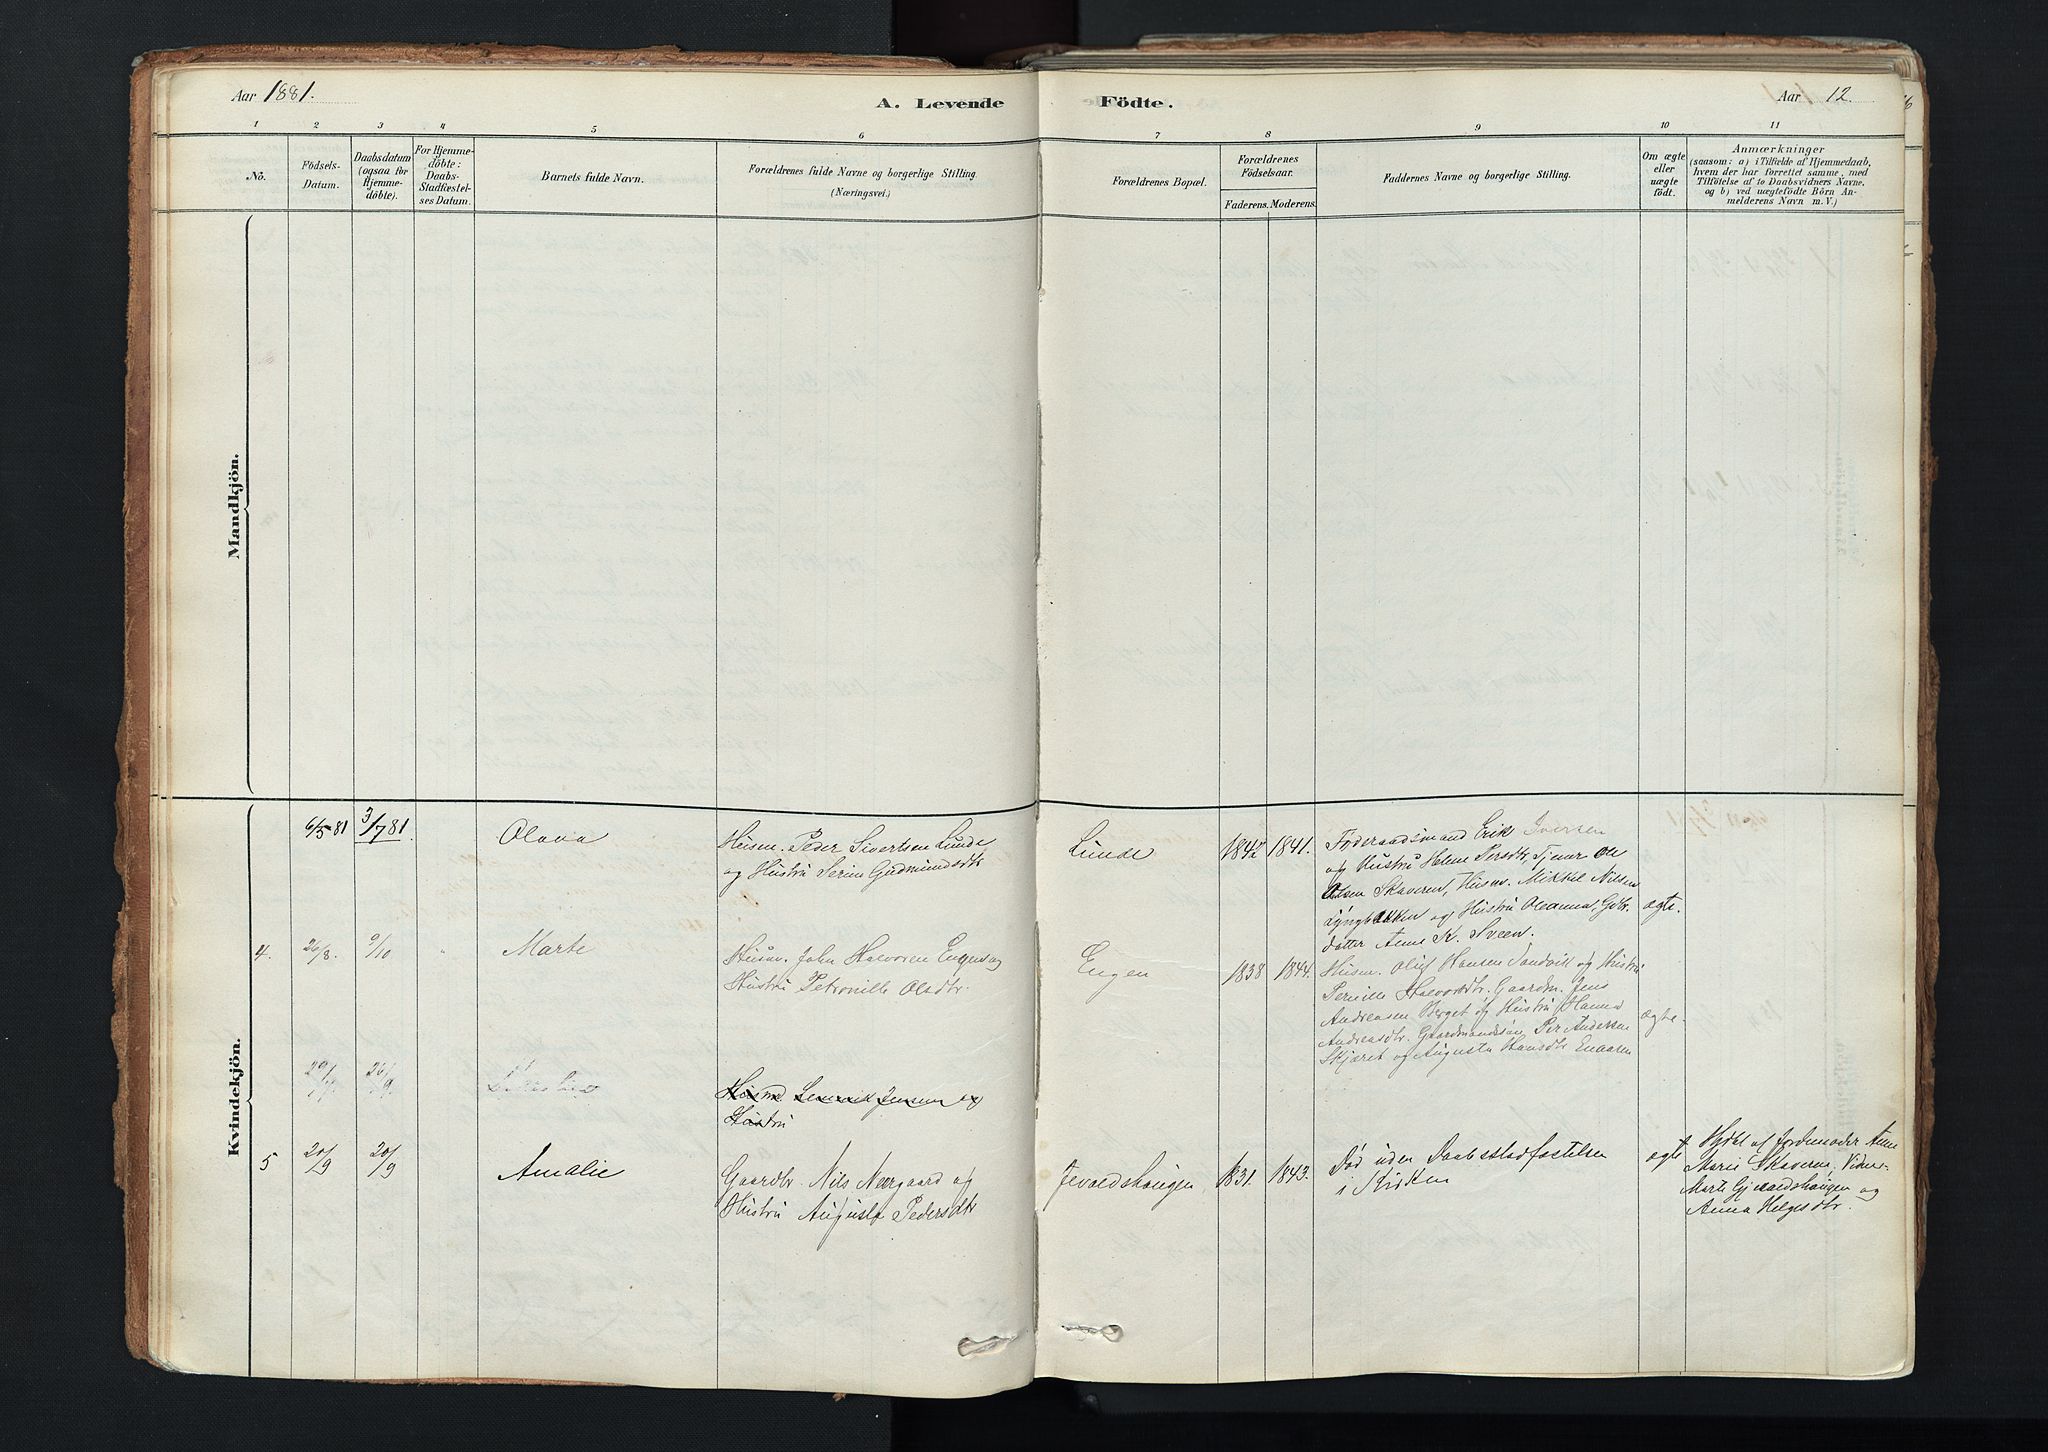 Aar 1881.
A. Levende Födte.
Aar 12.
1 2 3 4 5 6 7 8 9 10 11
No.
Födsels-
Datum.
Daabsdatum
(ogsaa for
Hjemme-
döbte).
For Hjemme-
döbte:
Daabs-
Stadfæstel-
ses Datum.
Barnets fulde Navn.
Forældrenes fulde Navne og borgerlige Stilling.
(Næringsvei.)
Forældrenes Bopæl.
Forældrenes
Födselsaar.
Faderens. Moderens.
Faddernes Navne og borgerlige Stilling.
Om ægte
eller
uægte
födt.
Anmærkninger
(saasom: a) i Tilfælde af Hjemmedaab,
hvem der har forrettet samme, med
Tilföielse af to Daabsvidners Navne,
og b) ved uægtefödte Börn An-
melderens Navn m. V.)
Mandkjön.
Kvindekjön.
6/5 81 3/7 81. Olava
Husm. Peder Sivertsen Lunde
og Hustru Serine Gudmundsdtr
Lunde
1842 1841.
Föderaadsmand Erik Iversen
og Hustru Helene Persdtr, Tjener Ole
Olsen Skaveren, Husm. Mikkel Nilsen
Lyngbakken og Hustru Oleanna, Gdbr.
datter Anne K. Sveen.
ægte.
4. 26/8. 9/10 " Marte
Husm. John Halvorsen Engen og
Hustru Petronille Olsdtr.
Engen
1838 1844.
Husm. Oluf Hansen Sandvik og Hustru
Pernille Halvorsdtr. Gaardm. Jens
Andreasen Berget og Hustru Hanna
Andreasdtr. Gaardmandssön Per Andersen
Skjæret og Augusta Hansdtr Enaaren
ægte.
Husmd Jensen og
Hustru
5 20/9 20/9 Amalie
Gaardbr. Nils Neergaard og
Hustru Augusta Pedersdtr
Jevaldshaugen
1831. 1843.
Död uden Daabsstadfæstelse
i Kirken
ægte
Hjdbt af Jordemoder Anne
Marie Skaveren, Vidner
Marte Gjevaldshaugen og
Anna Helgesdtr.